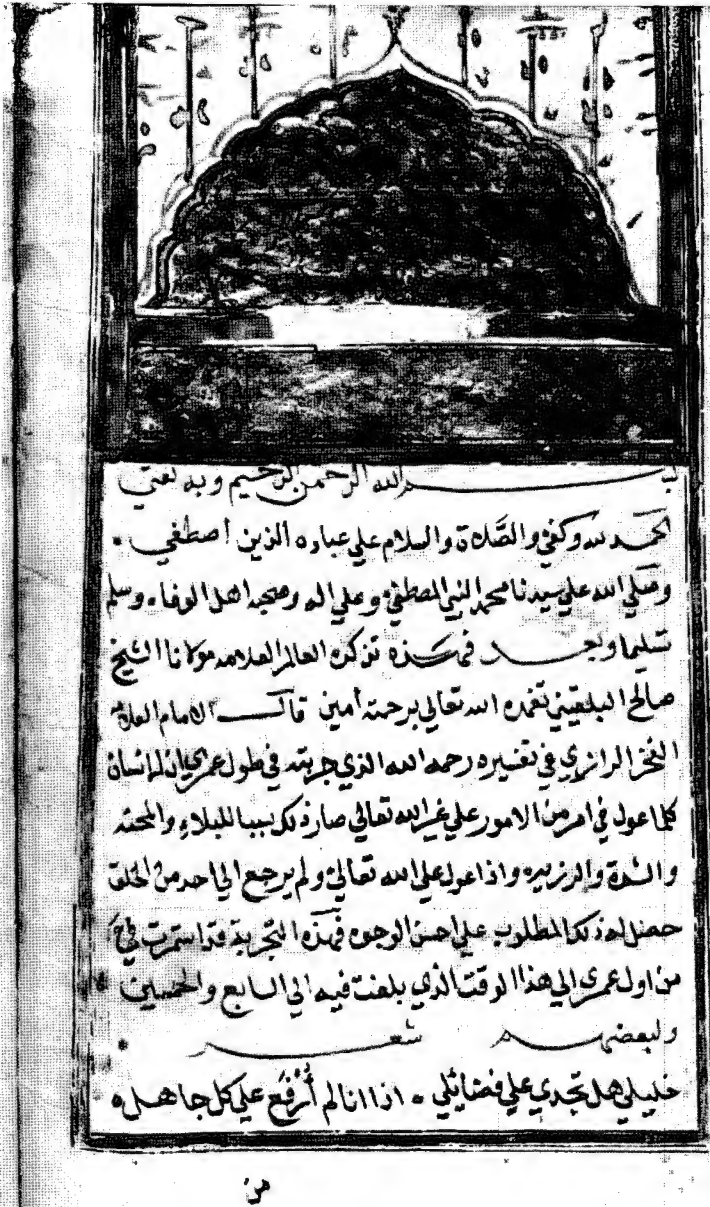 بسم الله الرحمن الرحيم وبه ثقتي
الحمد لله وكفي والصَّلاة والسلام علي عباده الذين اصطفي .
وصلي الله علي سيدنا محمد النبي المصطفي وعلي اله وصحبه اهل الوفاء وسلم
تسليما وبعد فهذه تذكره العالم العلامه مولانا الشيخ
صالح البلقيني تغمده الله تعالي برحمته أمين قال الامام العلامه
الفخر الرازي في تفسيره رحمه الله الذي جربته في طول عمري ان الانسان
كلما عول في امر من الامور علي غير الله تعالي صار ذلك سببا للبلاء والمحنه
والشدة والرزيه واذا عول علي الله تعالي ولم يرجع الي احد من الخلق
حصل له ذلك المطلوب علي احسن الوجوه فهذه التجربة قد استمرت لي
من اول عمري الي هذا الوقت الذي بلغت فيه الي السابع والخمسين
ولبعضهم شعر
خليلي هل تجدي علي فضائلي . اذا انا لم أُرفع علي كل جاهل ه
من